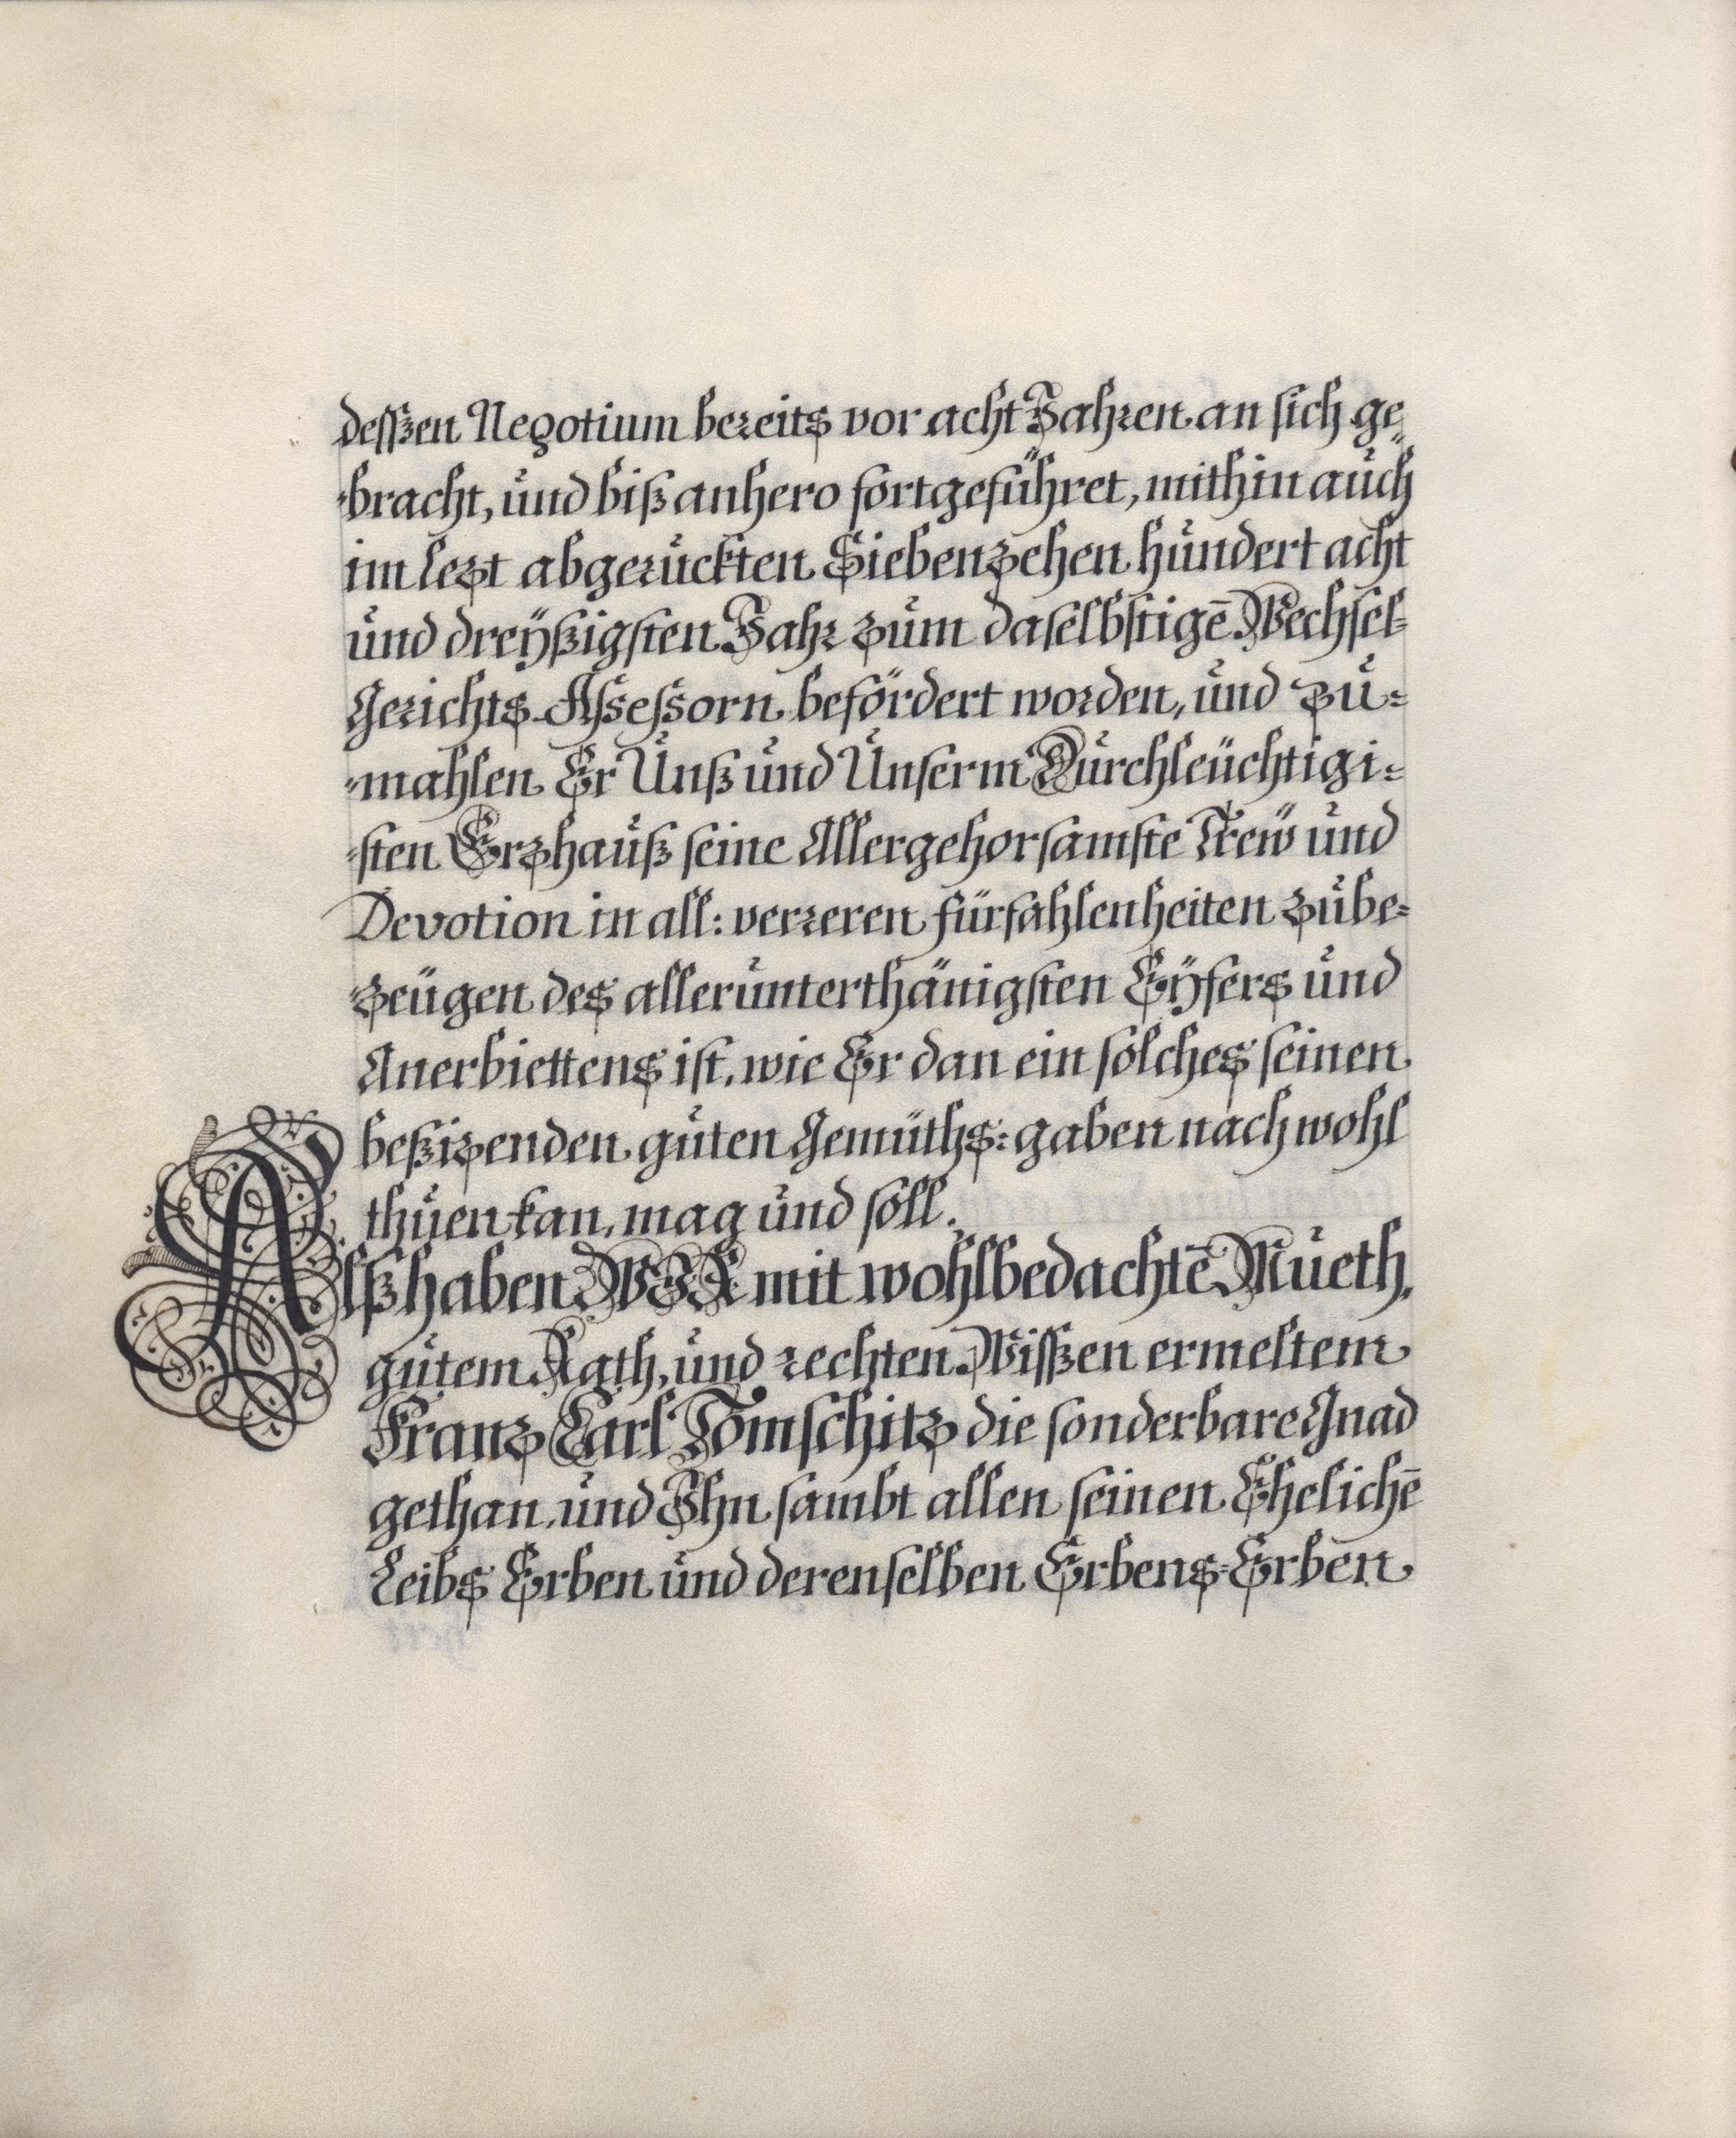 desßen Negotium bereits vor acht Jahren an sich ge¸
⸗bracht, und biß anhero fortgeführet, mithin auch
im lezt abgeruckten Siebenzehen hundert acht
und dreÿßigsten Jahr zum daselbstigē Wechsel⸗
Gerichts Assessorn befördert worden, und zu⸗
⸗mahlen Er Unß und Unserm Durchleüchtigi⸗
⸗sten Erzhauß seine Allergehorsamste Trew und
Devotion in all: verreren fürfahlenheiten zu be⸗
⸗zeügen des allerunterthänigsten Eÿfers und
Anerbiettens ist, wie Er dan ein solches seinen
beßizenden guten Gemüths⸗gaben nach wohl
thuen kan, mag und soll.
Alß haben WIR mit wohlbedachtē Mueth,
gutem Rath, und rechten Wissen ermeltem
Franz Carl Tomschitz die sonderbare Gnad
gethan, und Ihn sambt allen seinen Ehelichē
Leibs Erben und derenselben Erbens⸗Erben